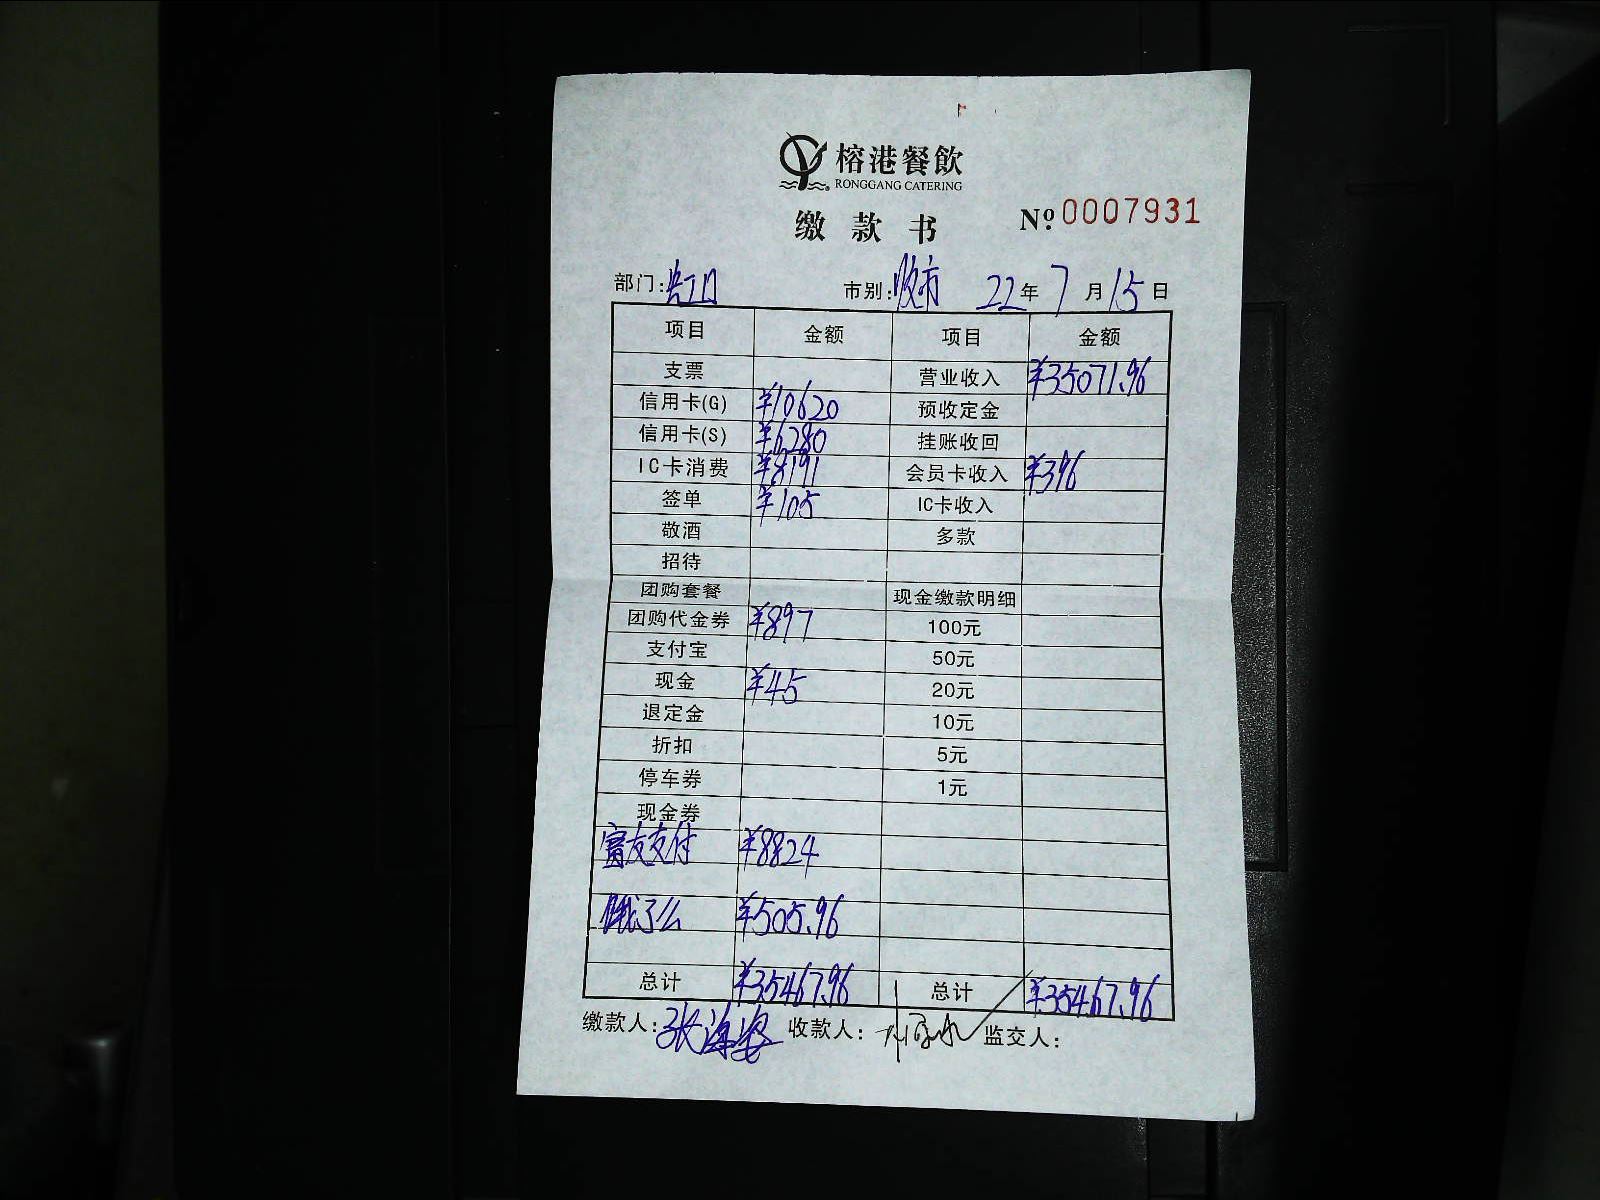 榕港餐飲
RONGGANG CATERING
缴款书 Nº 0007931
部门:虹口 市别:收市 22年7月15日
项目 金额 项目 金额
支票 营业收入 ¥35071.96
信用卡(G) ¥10620 预收定金
信用卡(S) ¥6280 挂账收回
IC卡消费 ¥8191 会员卡收入 ¥396
签单 ¥105 IC卡收入
敬酒 多款
招待
团购套餐 现金缴款明细
团购代金券 ¥897 100元
支付宝 50元
现金 ¥45 20元
退定金 10元
折扣 5元
停车券 1元
现金券
富友支付 ¥8824
饿了么 ¥505.96
总计 ¥35467.96 总计 ¥35467.96
缴款人:张海 收款人: 监交人: